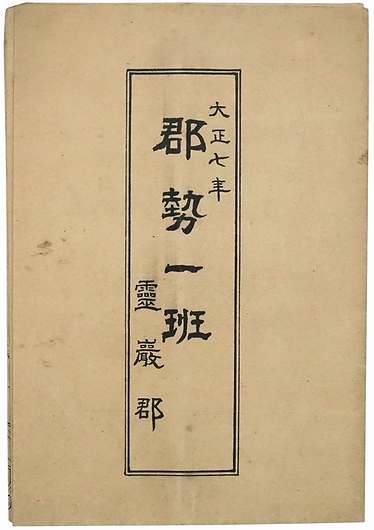 大正七年
郡勢一班
靈巖郡